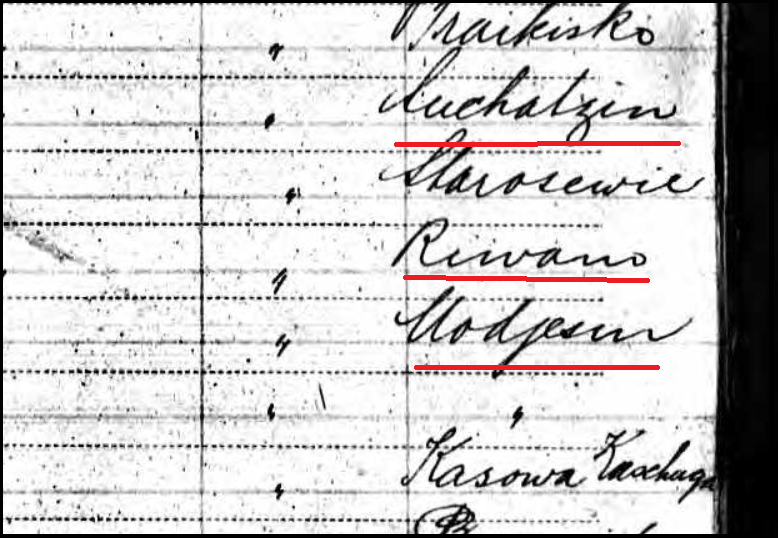 " Praikisko
" Luchatzin
" Starosewie
" Riwano
" Modjesin
" "
" Kasowa Kaschuga